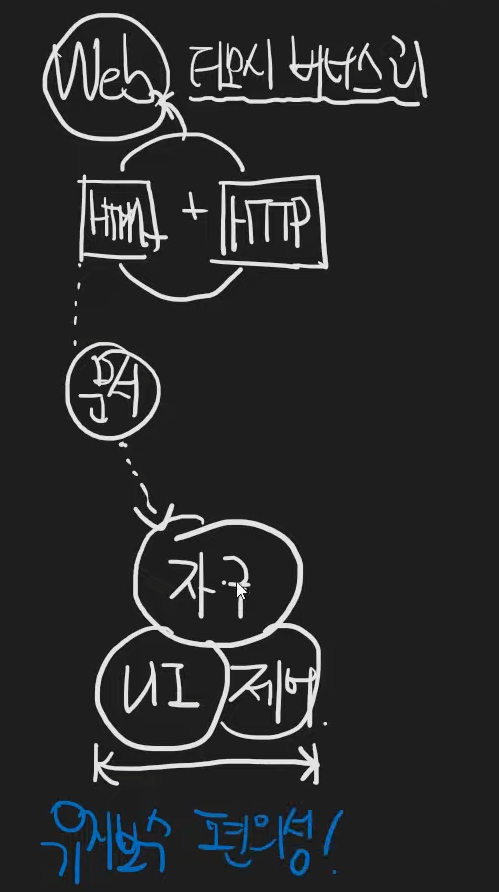 Web 티모시 버너스리
HTML + HTTP
문서
자구
UI 제어.
유지보수 편의성!